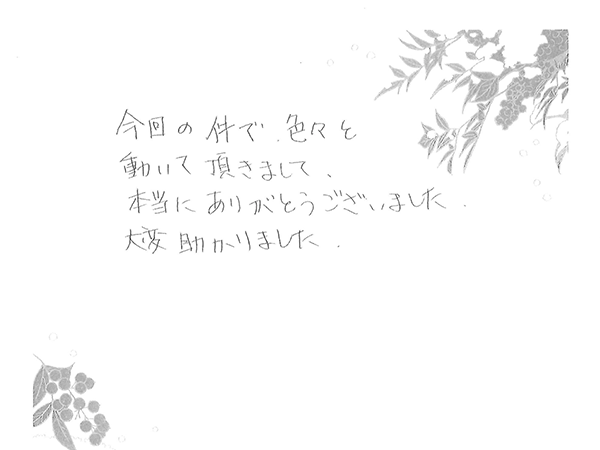 今回の件で、色々と
動いて頂きまして、
本当にありがとうございました。
大変助かりました。